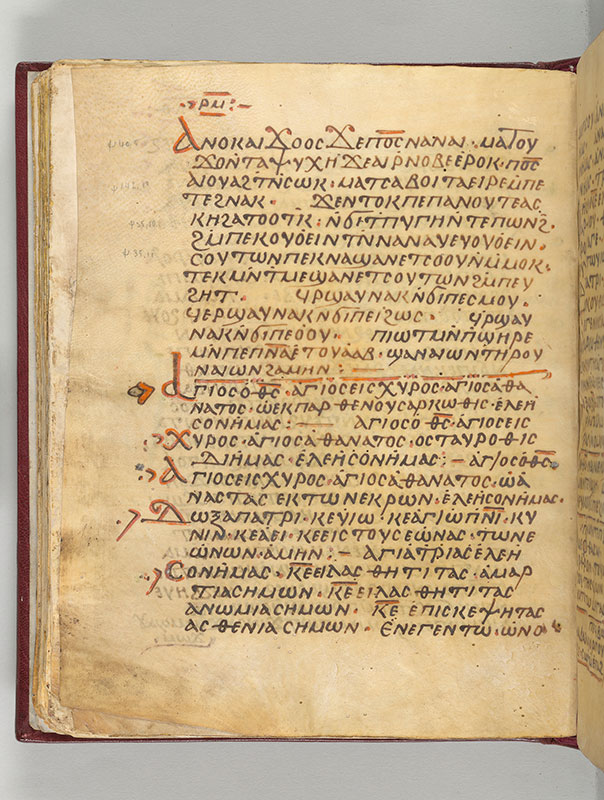 ⲣⲙ
ⲀⲚⲞⲔⲀⲒϪⲞⲞⲤϪⲈⲠ⳪ⲚⲀⲚⲀⲒ · ⲘⲀⲦⲞⲨ
ϪⲞⲚⲦⲀⲮⲨⲬⲎϪⲈⲀⲒⲢⲚⲞⲂⲈⲈⲢⲞⲔ · ⲠⲞ̅Ⲥ̅
ⲀⲒⲞⲨⲀϨⲦⲚ̅ⲤⲰⲔ · ⲘⲀⲦⲤⲀⲂⲞⲒⲦⲀⲈⲒⲢⲈⲘ̅ⲠⲈ
ⲦⲈϨⲚⲀⲔ · ϪⲈⲚⲦⲞⲔⲠⲈⲠⲀⲚⲞⲨⲦⲈ
ϨⲘ̅ⲠⲈⲔⲞⲨⲞⲈⲒⲚⲦⲚ̅ⲚⲀⲚⲀⲨⲈⲨⲞⲨⲞⲈⲒⲚ ·
ⲤⲞⲨⲦⲰⲚⲠⲈⲔⲚⲀⲈϪⲚ̅ⲚⲈⲦⲤⲞⲞⲨⲚⲘ̅ⲘⲞⲔ ·
ϨⲎⲦ · ϤⲢ̅ϢⲀⲨⲚⲀⲔⲚ̅ϬⲒⲠⲈⲤⲘⲞⲨ ·
ϤⲈⲢϢⲀⲨⲚⲀⲔⲚ̅ϬⲒⲠⲈⲒϨⲰⲤ · ϤⲢ̅ϢⲀⲨ
ⲚⲀⲔⲚ̅ϬⲒⲠⲈⲞⲞⲨ · ⲠⲒⲰⲦⲘⲚ̅ⲠϢⲎⲢⲈ
ⲘⲚ̅ⲠⲈⲠ̅Ⲛ̅Ⲁ̅ⲈⲦⲞⲨⲀⲀⲂ · ϢⲀⲚⲀⲒⲰⲚⲦⲎⲢⲞⲨ
ⲚⲀⲒⲰⲚϨⲀⲘⲎⲚ : —
ⲀⲄⲒⲞⲤⲞ̇Ⲑ̅Ⲥ̅ · ⲀⲄⲒⲞⲤⲈⲒⲤⲬⲨⲢⲞⲤ · ⲀⲄⲒⲞⲤⲀⲐⲀ
ⲚⲀⲦⲞⲤ · ⲰⲈⲔⲠⲀⲢⲐⲈⲚⲞⲨⲤⲀⲢⲔⲰⲐⲒⲤ · ⲈⲖⲈⲎ
ⲤⲞⲚⲎⲘⲀⲤ : — ⲀⲄⲒⲞⲤⲞⲐ̅Ⲥ̅ · ⲀⲄⲒⲞⲤⲈⲒⲤ
ⲬⲨⲢⲞⲤ · ⲀⲄⲒⲞⲤⲀⲐⲀⲚⲀⲦⲞⲤ · ⲞⲤⲦⲀⲨⲢⲞⲐⲒⲤ
ⲆⲒⲎⲘⲀⲤ · ⲈⲖⲈⲎⲤⲞⲚⲎⲘⲀⲤ : — ⲀⲄⲒⲞⲤⲞⲐ̅Ⲥ̅
ⲀⲄⲒⲞⲤⲈⲒⲤⲬⲨⲢⲞⲤ · ⲀⲄⲒⲞⲤⲀⲐⲀⲚⲀⲦⲞⲤ · ⲰⲀ
ⲚⲀⲤⲦⲀⲤ ⲈⲔⲦⲰⲚⲈⲔⲢⲰⲚ · ⲈⲖⲈⲎⲤⲞⲚⲎⲘⲀⲤ ·
ⲆⲰⲜⲀⲠⲀⲦⲢⲒ · ⲔⲈⲨⲒⲰ · ⲔⲈⲀⲄⲒⲰⲠ̅Ⲛ̅Ⲓ̅ · ⲔⲨ
ⲚⲒⲚ · ⲔⲈⲀⲈⲒ · ⲔⲈⲈⲒⲤⲦⲞⲨⲤⲈⲰⲚⲀⲤ · ⲦⲰⲚⲈ
ⲰⲚⲰⲚ · ⲀⲘⲎⲚ : — ⲀⲄⲒⲀⲦⲢⲒⲀⲤⲈⲖⲈⲎ
ⲤⲞⲚⲎⲘⲀⲤ · Ⲕ̅Ⲉ̅ⲈⲒⲖⲀⲤⲐⲎⲦⲒⲦⲀⲤ · ⲀⲘⲀⲢ
ⲦⲒⲀⲤⲎⲘⲰⲚ · Ⲕ̅Ⲉ̅ⲈⲒⲖⲀⲤⲐⲎⲦⲒⲦⲀⲤ
ⲀⲚⲰⲘⲒⲀⲤⲎⲘⲰⲚ · Ⲕ̅Ⲉ̅ ⲈⲠⲒⲤⲔⲈⲮⲎⲦⲀⲤ
ⲀⲤⲐⲈⲚⲒⲀⲤⲎⲘⲰⲚ · ⲈⲚⲈⲄⲈⲚⲦⲰ · ⲰⲚⲞ